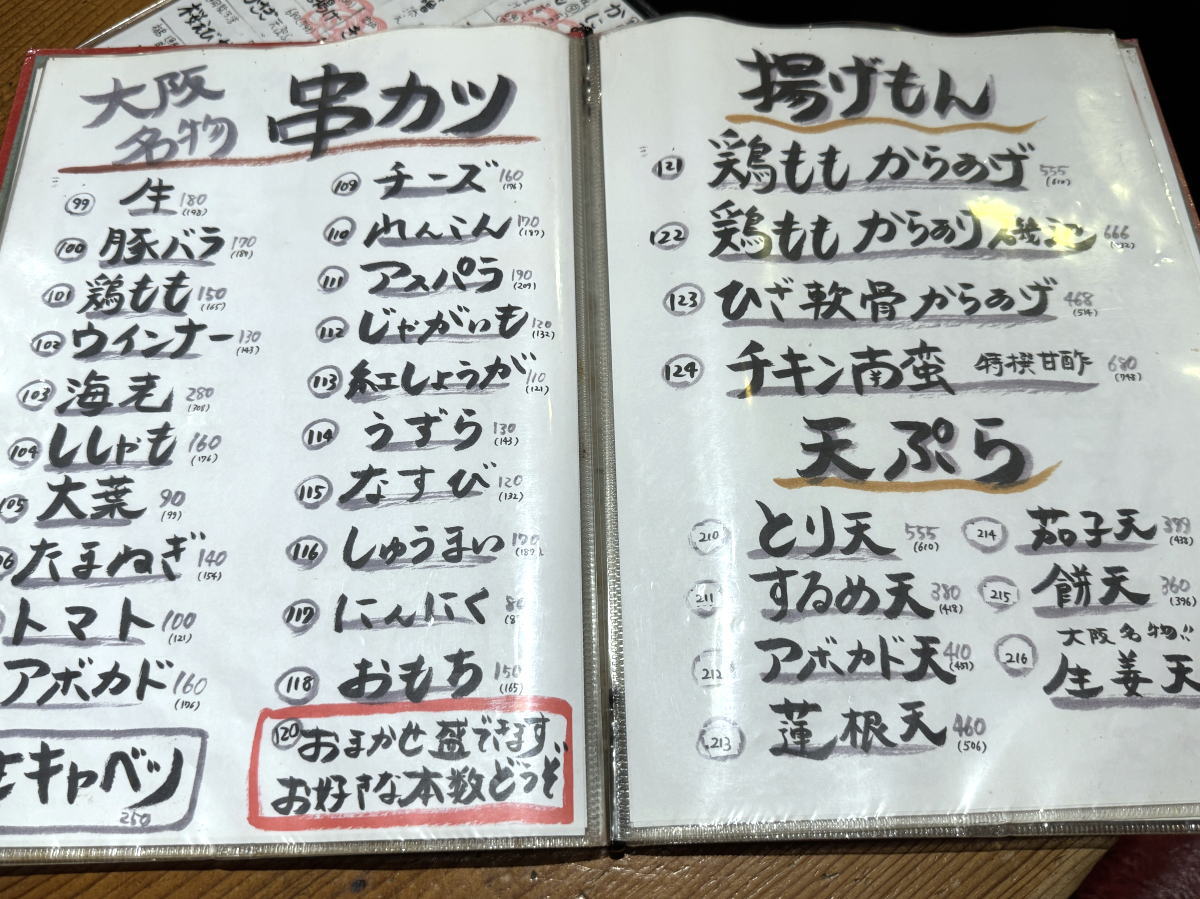 大阪
名物
串カツ
99 生 180 (198)
100 豚バラ 170 (189)
101 鶏もも 150 (165)
102 ウインナー 130 (143)
103 海老 280 (308)
104 ししゃも 160 (176)
105 大葉 90 (99)
たまねぎ 140 (154)
トマト 100 (121)
アボカド 160 (176)
キャベツ
250
109 チーズ 160 (176)
110 れんこん 170 (187)
111 アスパラ 190 (209)
112 じゃがいも 120 (132)
113 紅しょうが 110 (121)
114 うずら 130 (143)
115 なすび 120 (132)
116 しゅうまい 170 (187)
117 にんにく
118 おもち 150 (165)
120 おまかせ盛できます
お好きな本数どうぞ
揚げもん
121 鶏もも からあげ 555 (610)
122 鶏もも からあり 666
123 ひざ軟骨からあげ 468 (514)
124 チキン南蛮 特撰甘酢 680 (748)
天ぷら
210 とり天 555 (610)
211 するめ天 380 (418)
212 アボカド天 410 (451)
213 蓮根天 460 (506)
214 茄子天 399 (438)
215 餅天 360 (396)
大阪名物!!
216 生姜天